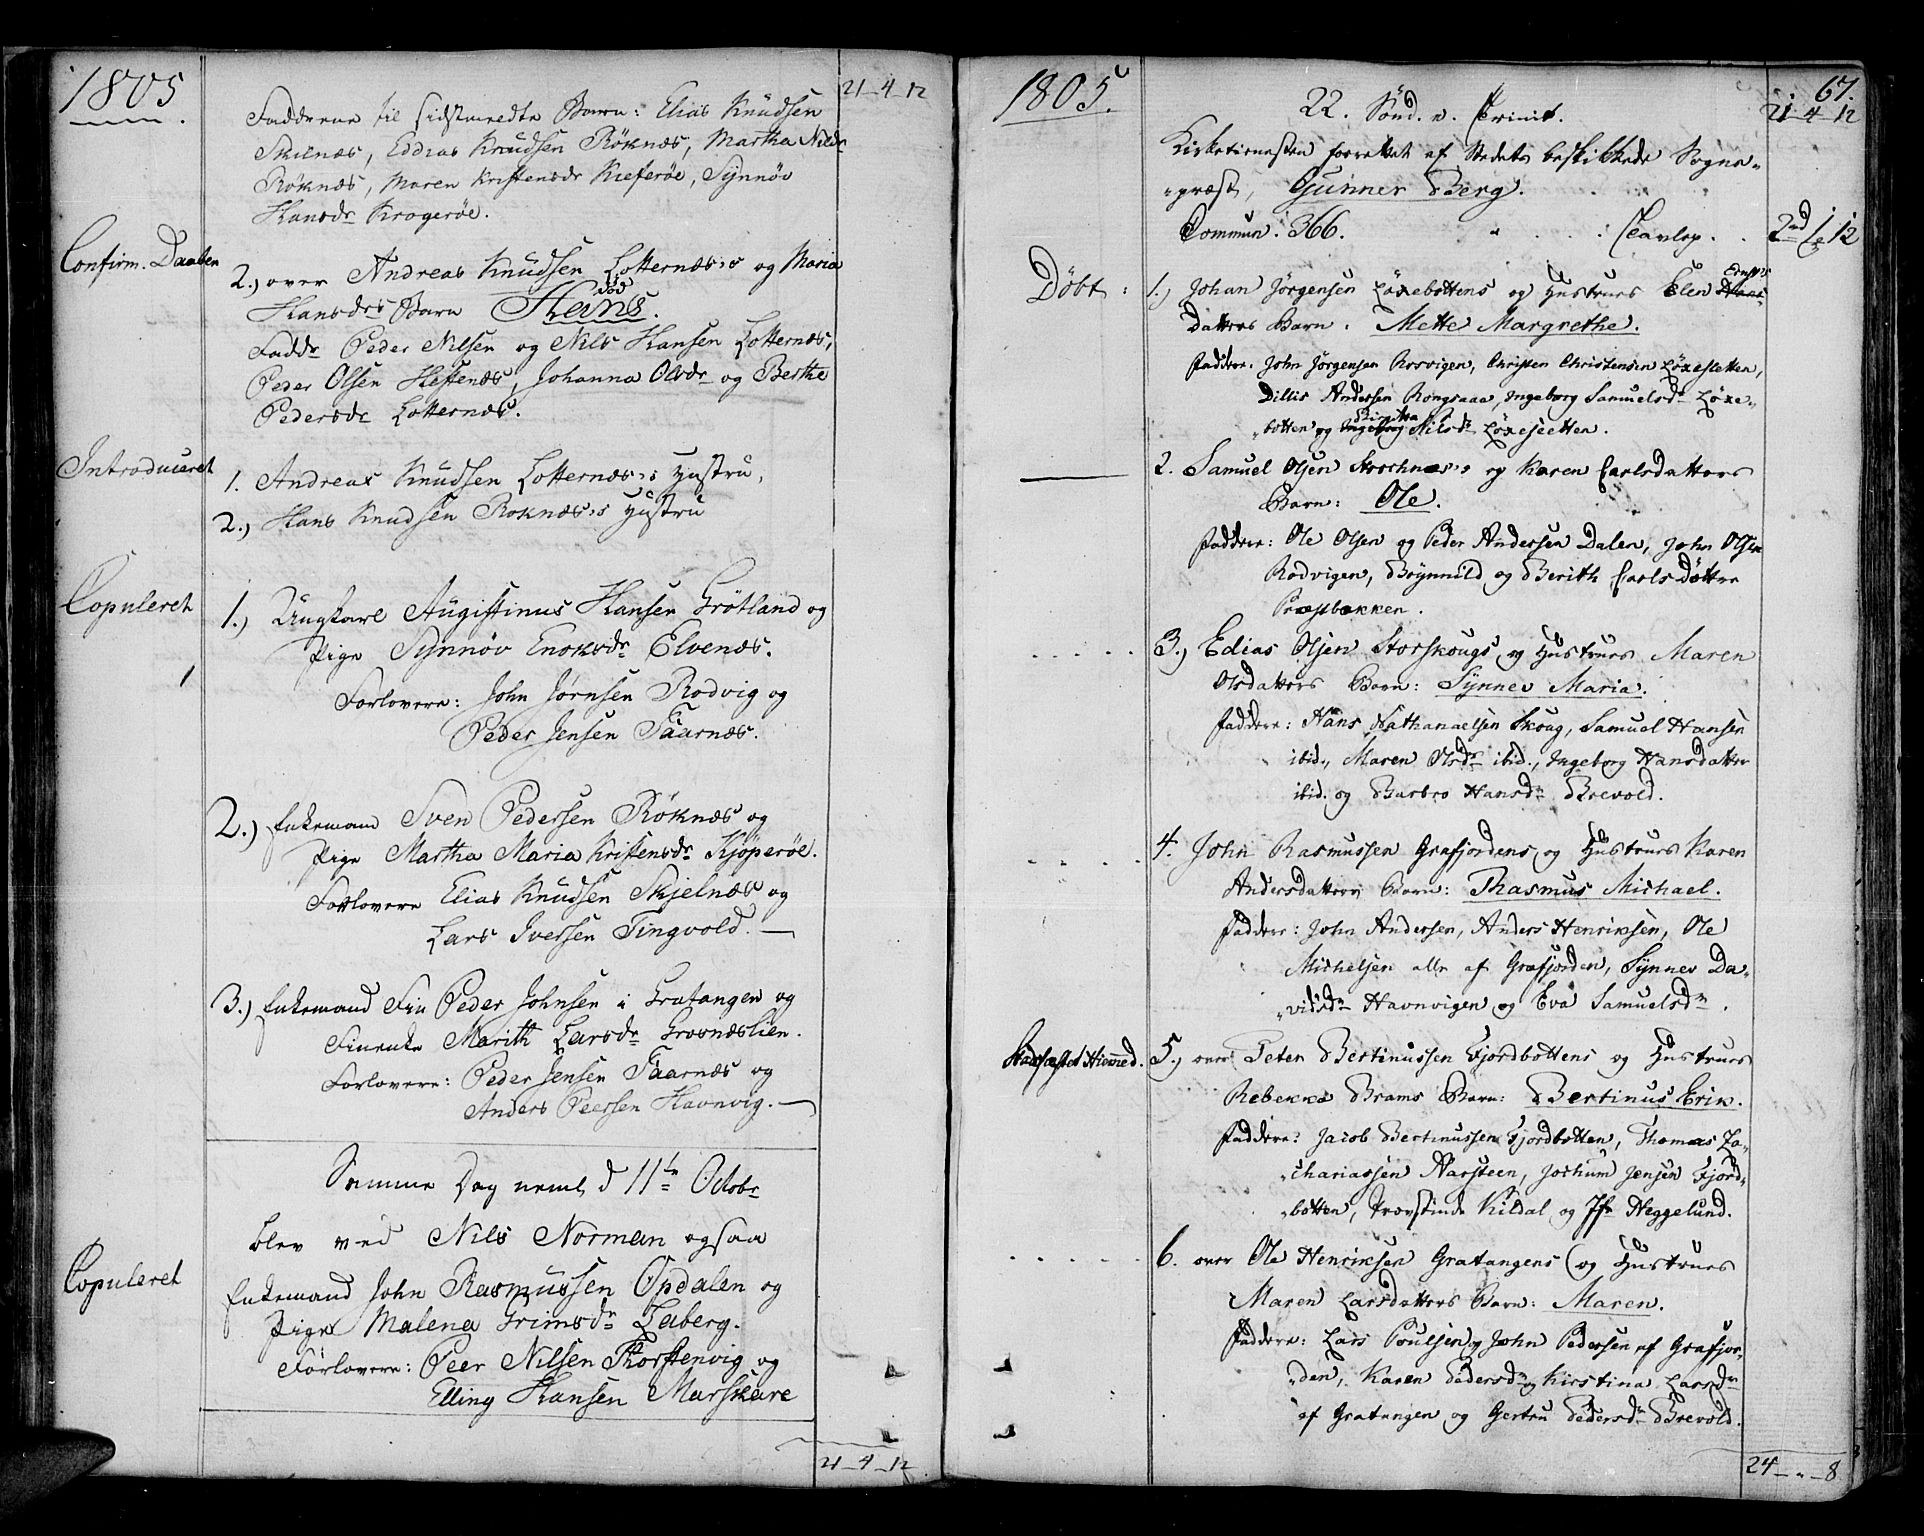 1805.
21_4_12
Faddrene til sidstmeldte Barn: Elias Knudsen
Skilnæs, Eddias Knudsen Röknæs, Martha Nilsdr
Röknæs, Maren Kristensdr Kieferöe, Synnöv
Hansdr Krogeröe.
Confirm. Daaben
2.) over Andreas Knudsen Lotternæs:s og Maria
Hansdrs Barn Hans. död
Faddr Peder Nilsen og Nils Hansen Lotternæs,
Peder Olsen Heftenæs, Johanna Olsdr og Berthe
Pedersdr Lotternæs.
Introduceret
1. Andreas Knudsen Lotternæs:s Hustru,
2.) Hans Knudsen Roknæs:s Hustru
Copuleret
1.) Ungkarl Augistinus Hansen Grötland og
Pige Synnöv Enoksdr Elvenæs.
Forlovere: John Jörnsen Rodvig og
Peder Jensen Faarnæs.
2.) Enkemand Sven Pedersen Röknæs og
Pige Martha Maria Kristensdr Kjöperöe.
Forlovere Elias Knudsen Skjelnæs og
Lars Iversen Tingvold.
3.) Enkemand Fin Peder Johnsen i Gratangen og
Finenke Marith Larsdr Grosnæslien.
Forlovere: Peder Jensen Faarnæs og
Anders Peersen Havnvig.
Samme Dag neml. d 11te Octobr
blev ved Nils Norman ogsaa
Copuleret
Enkemand John Rasmussen Opdalen og
Pige Malena Grimsdr Laberg.
Forlovere: Peer Nilsen Storstenvig og
Elling Hansen Marskare
21_4_12
1805.
67.
22. Sönd. e. Trinit.
21_4_12
Kirketienesten forrettet af Stedets beskikkede Sogne-
præst, Gunner Berg.
Commun. 366. Tavlep. 2rd 1 12
Döbt:
1.) Johan Jörgensen Löxebottens og Hustrues Elen Ernst's
Datters Barn. Mette Margrethe.
Faddere. John Jörgensen Rosvigen, Christen Christensen Löxesletten,
Dillis Andersen Rongsaae, Ingeborg Samuelsdr Löxe-
botten og Birgitha Nilsdr Löxesletten.
2. Samuel Olsen Storchnæs:s og Karen Carlsdatters
Barn: Ole.
Faddere: Ole Olsen og Peder Andersen Dalen, John Olsen
Rodvigen, Brynnild og Berith Carls Döttre
Præstbakken.
3.) Edias Olsen Storskougs og Hustrues Maren
Olsdatters Barn: Synnev Maria.
Faddere: Hans Nathanaelsen Skoug, Samuel Hansen
ibid., Maren Olsdr ibid., Ingeborg Hansdatter
ibid. og Barbro Hansdr Brevold.
4. John Rasmussen Grafjordens og Hustrues Karen
Andersdatters Barn: Rhasmus Michael.
Faddere: John Andersen, Anders Henriksen, Ole
Michelsen alle af Grafjorden, Synnev Da-
vidsdr Havnvigen og Eva Samuelsdr.
Stadfæstet Hiemed.
5.) over Peter Bertinussen Fjordbottens og Hustrues
Rebekka Brams Barn: Bertinus Erik.
Faddere: Jacob Bertinussen Fjordbotten, Thomas Za-
chariassen Aarsteen, Jochum Jensen Fjord-
botten, Provstinde Kildal og Jfr Heggelund.
6. over Ole Henriksen Gratangens og Hustrues
Maren Larsdatters Barn: Maren.
Faddere: Lars Poulsen og John Pedersen af Grafjor-
den, Karen Pedersdr og Kirstina Larsdr
af Gratangen og Gertru Pedersdr Brevold.
24_"_8